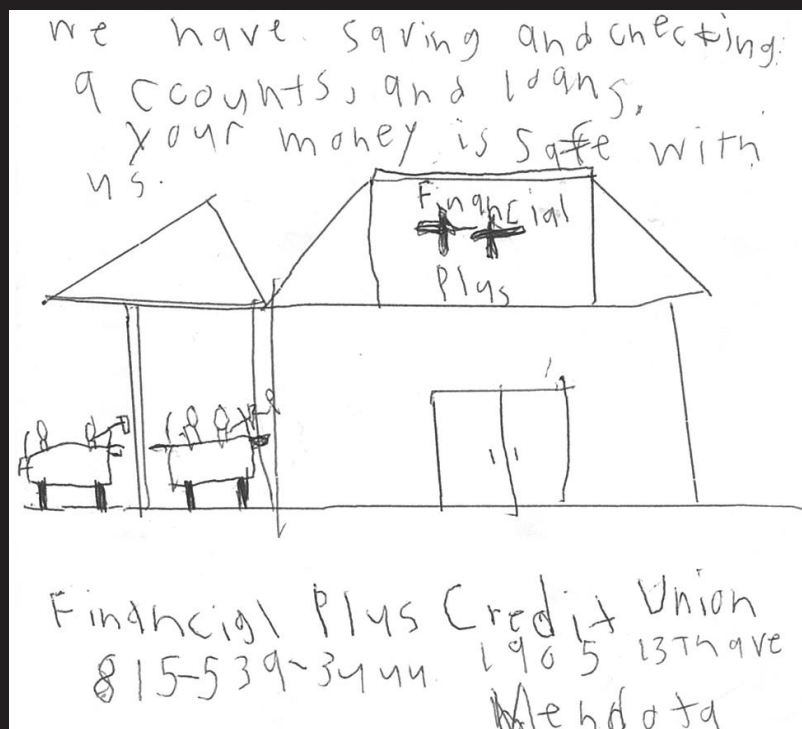 we have saving and checking
accounts, and loans.
your money is safe with
us.
Financial
Plus
Financial Plus Credit Union
815-539-3444 1905 13Th ave
Mendota